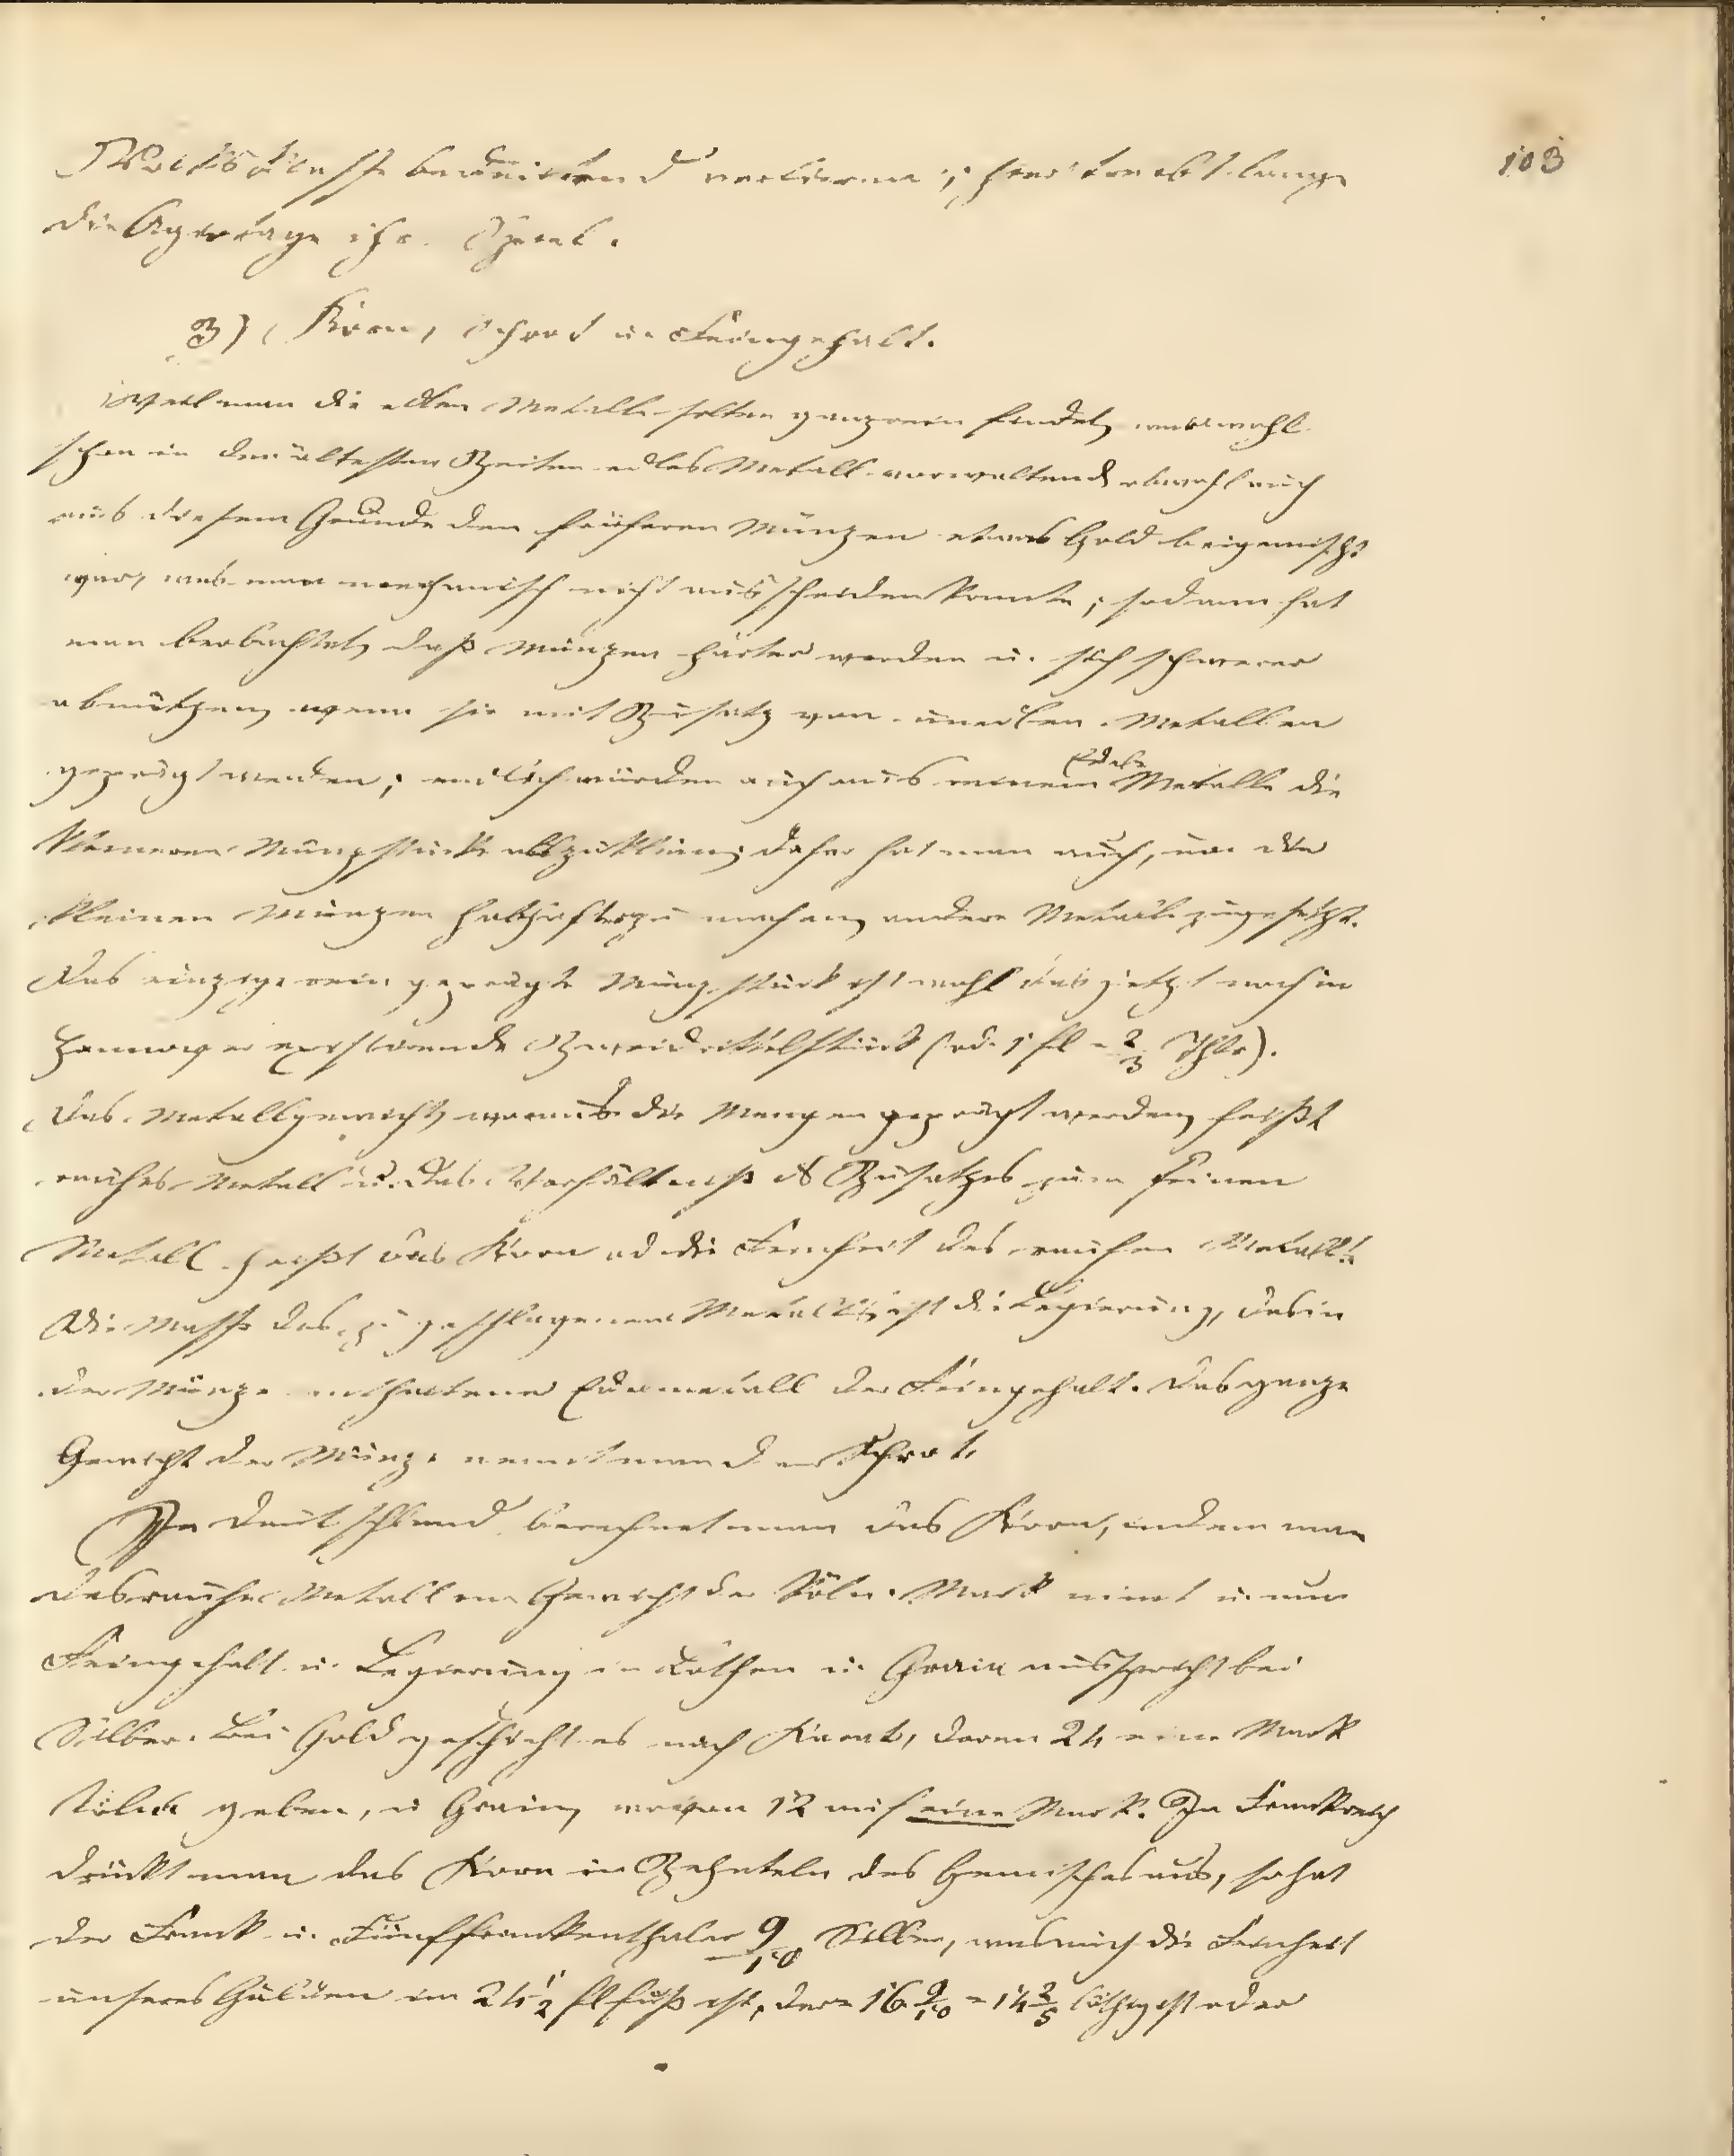 103
Volksklasse bedeutend verlieren; heut erst lange
die Agiotage ihr Spiel.
3) Korn, Schrot u. Feingehalt.
Weil man die edlen Metalle selten ganz rein findet, war wohl
schon in den ältesten Zeiten edles Metall vorwaltend obwohl auch
aus diesem Grunde den früheren Münzen etwas Gold beigemischt
war, was man mechanisch nicht ausscheiden konnte; sodann hat
man beobachtet, daß Münzen härter werden u. sich schwerer
abnützen, wenn sie mit Zusatz von unedlen Metallen
geprägt werden; endlich würden auch aus reinem Metalle die
edele
kleineren Münzstücke allzu klein; daher hat man auch, um die
kleinen Münzen haltbafter zu machen, andere Metalle zugesetzt.
Das einzige rein geprägte Münzstück ist wohl das jetzt noch in
Hannover existirende Zweidrittelstück (od. 1 fl = 2/3 Thlr).
Das Metallgewicht, woraus die Mengen geprägt werden, heißt
rauhes Metall u. das Verhältniß des Zusatzes zum feinen
Metall heißt das Korn od. die Feinheit des rauhen Metalls.
Die Masse des zugeschlagenen Metalls ist die Legierung, das in
der Münze enthaltene Edelmetall der Feingehalt. Das ganze
Gewicht der Münze nennt man den Schrot.
In Deutschland berechnet man das Korn, indem man
das rauhe Metall im Gewicht der Köln. Mark nimt u. nun
Feingehalt u. Legierung in Lothen u. Grain ausspricht bei
Silber. Bei Gold geschieht es nach Karat, deren 24 eine Mark
kölnisch geben, u. Grain, wovon 12 auf eine Mark. In Frankreich
drückt man das Korn in Zehnteln des Gemisches aus, so hat
der Frank u. Fünffrankenthaler 9/10 Silber, was auch die Feinheit
unseres Gulden im 24 1/2 fl fuß ist, der = 16 9/10 = 14 2/5 löthig ist oder